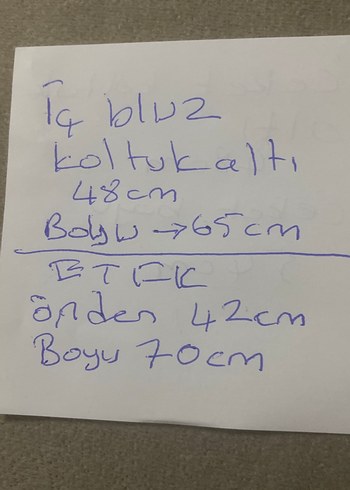 İç bluz
koltukaltı
48cm
Boyu →65cm
ETEK
önden 42cm
Boyu 70cm